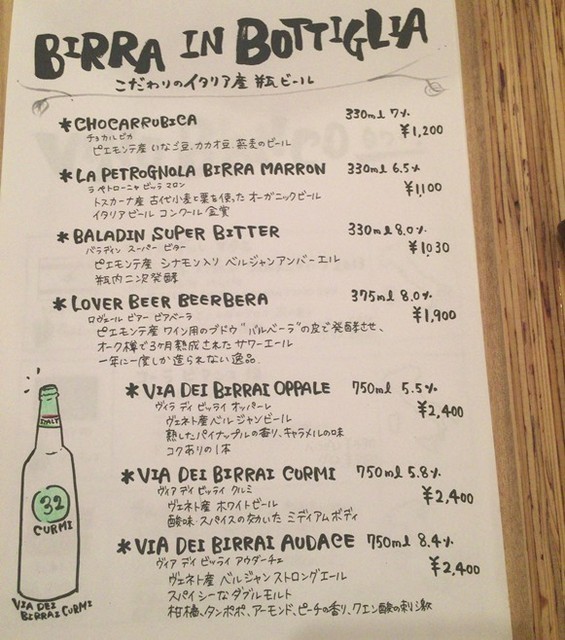 BIRRA IN BOTTIGLIA
こだわりのイタリア産 瓶ビール
*CHOCARRUBICA 330ml 7%
チョカルビカ ¥1,200
ピエモンテ産 いなご豆、カカオ豆、燕麦のビール
*LA PETROGNOLA BIRRA MARRON 330ml 6.5%
ラ ペトローニャ ビッラ マロン ¥1,100
トスカーナ産 古代小麦と栗を使った オーガニックビール
イタリアビール コンクール 金賞
*BALADIN SUPER BITTER 330ml 8.0%
バラディン スーパー ビター ¥1,030
ピエモンテ産 シナモン入り ベルジャンアンバーエール
瓶内二次発酵
*LOVER BEER BEERBERA 375ml 8.0%
ロヴェール ビアー ビアベーラ ¥1,900
ピエモンテ産 ワイン用のブドウ "バルベーラ"の皮で発酵させ、
オーク樽で3ヶ月熟成された サワーエール
一年に一度しか造られない逸品.
*VIA DEI BIRRAI OPPALE 750ml 5.5%
ヴィラ ディ ビッライ オッパーレ ¥2,400
ヴェネト産 ベルジャンビール
熟したパイナップルの香り、キャラメルの味
コクありの1本
*VIA DEI BIRRAI CURMI 750ml 5.8%
ヴィア ディ ビッライ クルミ ¥2,400
ヴェネト産 ホワイトビール
酸味・スパイスの効いた ミディアムボディ
*VIA DEI BIRRAI AUDACE 750ml 8.4%
ヴィア ディ ビッライ アウダーチェ ¥2,400
ヴェネト産 ベルジャン ストロングエール
スパイシーなダブルモルト
柑橘、タンポポ、アーモンド、ピーチの香り、クエン酸の刺激
ITALY
32
CURMI
VIA DEI
BIRRAI CURMI